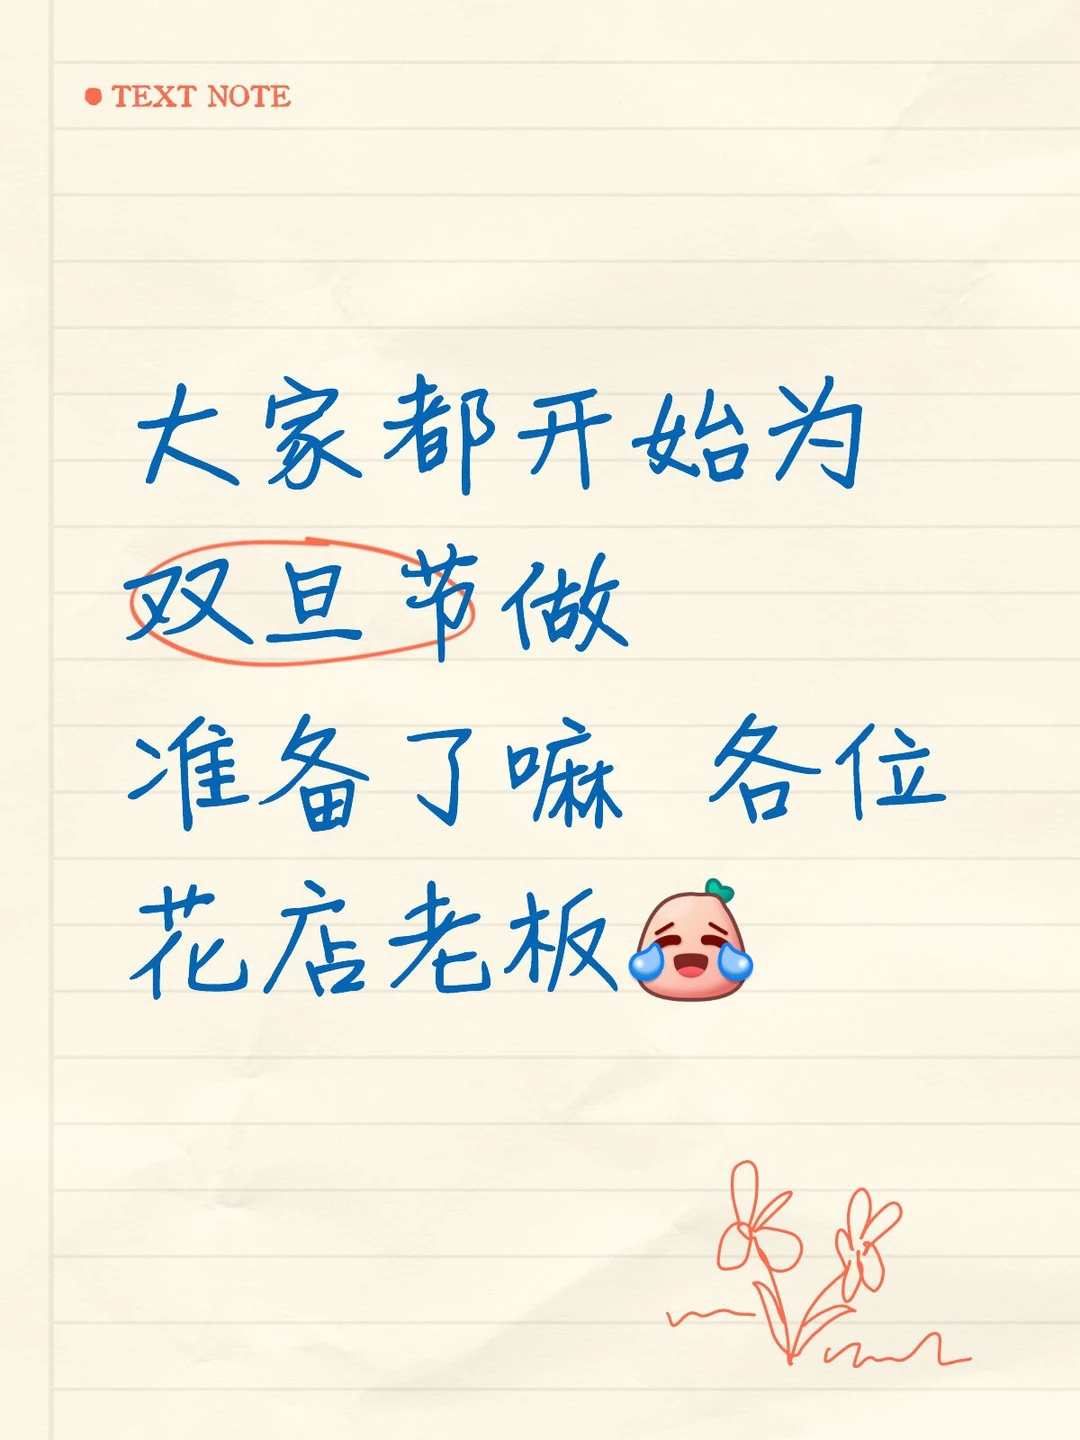 TEXT NOTE
大家都开始为
双旦节做
准备了嘛 各位
花店老板